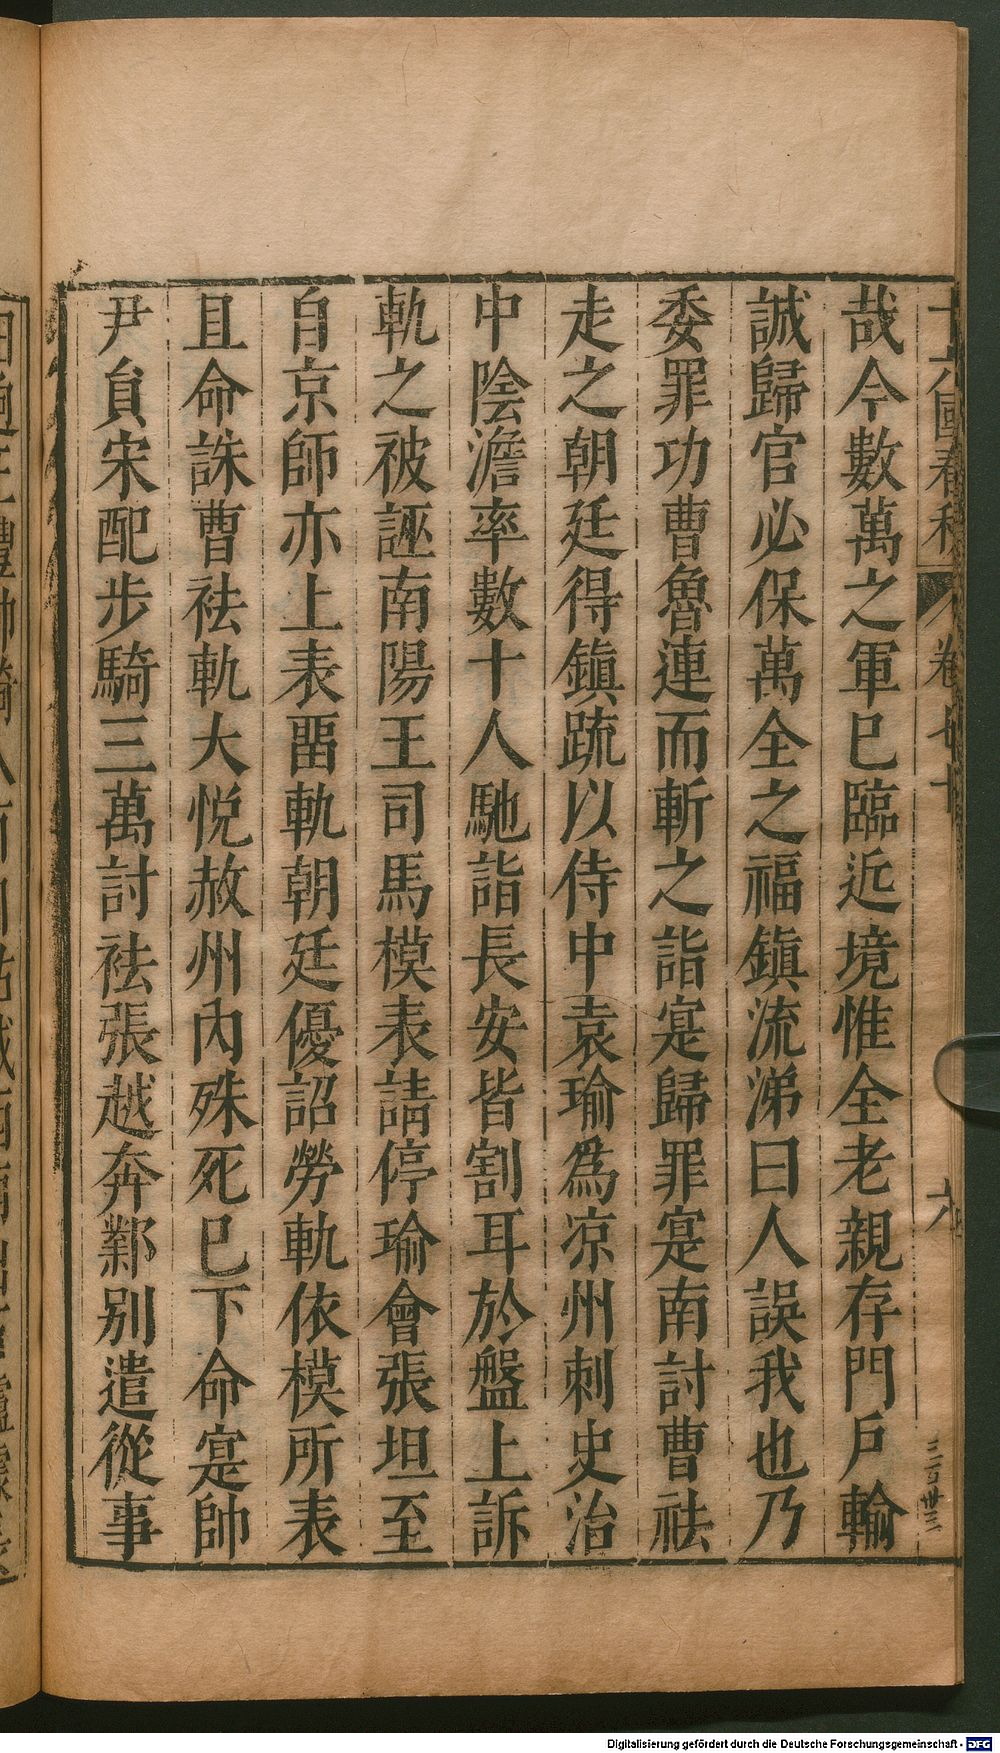 十六國春秋 卷七十 六
三百卅三
哉今數萬之軍巳臨近境惟全老親存門戶輸
誠歸官必保萬全之福鎮流涕曰人誤我也乃
委罪功曹魯連而斬之詣寔歸罪寔南討曹祛
走之朝廷得鎮疏以侍中袁瑜爲凉州刺史治
中陰澹率數十人馳詣長安皆割耳於盤上訴
軌之被誣南陽王司馬模表請停瑜會張坦至
自京師亦上表畱軌朝廷優詔勞軌依模所表
且命誅曹祛軌大悅赦州內殊死巳下命寔帥
尹員宋配步騎三萬討祛張越奔鄴別遣從事
Digitalisierung gefördert durch die Deutsche Forschungsgemeinschaft - DFG